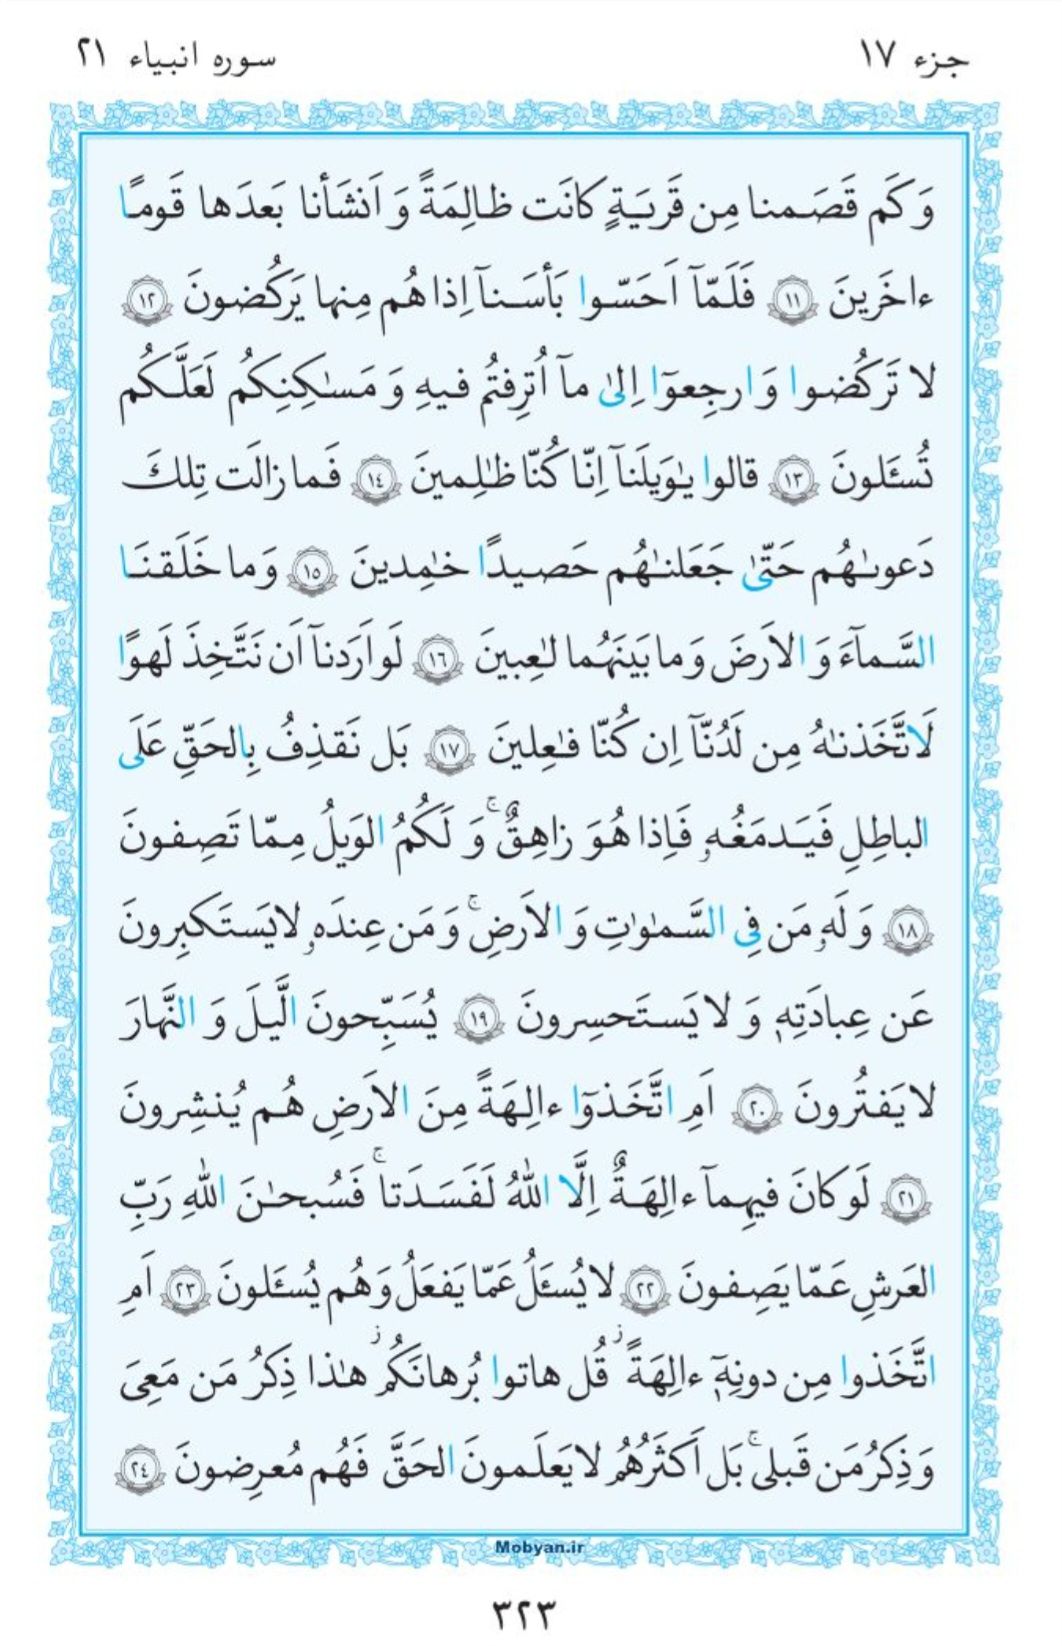 جزء ۱۷
سوره انبیاء ۲۱
وَ كَم قَصَمنا مِن قَريَةٍ كانَت ظالِمَةً وَ اَنشَأنا بَعدَها قَومًا
ءاخَرينَ ١١ فَلَمّآ اَحَسّوا بَأسَنآ اِذا هُم مِنها يَركُضونَ ١٢
لا تَركُضوا وَ ارجِعوٓا اِلىٰ مآ اُترِفتُم فيهِ وَ مَسٰكِنِكُم لَعَلَّكُم
تُسـَٔلونَ ١٣ قالوا يٰوَيلَنآ اِنّا كُنّا ظٰلِمينَ ١٤ فَما زالَت تِلكَ
دَعوىٰهُم حَتّىٰ جَعَلنٰهُم حَصيدًا خٰمِدينَ ١٥ وَ ما خَلَقنَا
السَّمآءَ وَ الاَرضَ وَ ما بَينَهُما لٰعِبينَ ١٦ لَو اَرَدنآ اَن نَتَّخِذَ لَهوًا
لَاتَّخَذنٰهُ مِن لَدُنّآ اِن كُنّا فٰعِلينَ ١٧ بَل نَقذِفُ بِالحَقِّ عَلَى
الباطِلِ فَيَدمَغُهٗ فَاِذا هُوَ زاهِقٌ ۚ وَ لَكُمُ الوَيلُ مِمّا تَصِفونَ
١٨ وَ لَهٗ مَن فِى السَّمٰوٰتِ وَ الاَرضِ ۚ وَ مَن عِندَهٗ لا يَستَكبِرونَ
عَن عِبادَتِهٖ وَ لا يَستَحسِرونَ ١٩ يُسَبِّحونَ الَّيلَ وَ النَّهارَ
لا يَفتُرونَ ٢٠ اَمِ اتَّخَذوٓا ءالِهَةً مِنَ الاَرضِ هُم يُنشِرونَ
٢١ لَو كانَ فيهِمآ ءالِهَةٌ اِلَّا اللّٰهُ لَفَسَدَتا ۚ فَسُبحٰنَ اللّٰهِ رَبِّ
العَرشِ عَمّا يَصِفونَ ٢٢ لا يُسـَٔلُ عَمّا يَفعَلُ وَ هُم يُسـَٔلونَ ٢٣ اَمِ
اتَّخَذوا مِن دونِهٖٓ ءالِهَةً ز قُل هاتوا بُرهانَكُم ز هٰذا ذِكرُ مَن مَعِىَ
وَ ذِكرُ مَن قَبلى ۚ بَل اَكثَرُهُم لا يَعلَمونَ الحَقَّ فَهُم مُعرِضونَ ٢٤
Mobyan.ir
۳۲۳